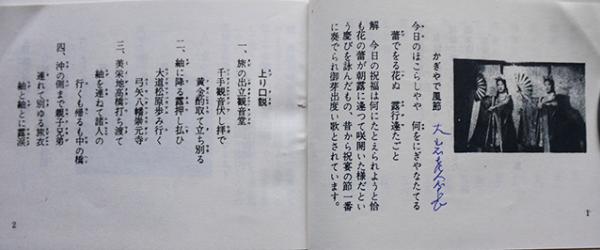 かぎやで風節
今日のほこらしやや 何をにぎやなたてる
蕾でをる花ぬ 露行逢たごと
解 今日の祝福は何にたとえられようと恰
も花の蕾が朝露に逢つて咲開いた様だとい
う慶びを詠んだもので、昔から祝宴の節一番
に奏でられ御芽出度い歌とされています。
1
上り口説
一、旅の出立観音堂
千手観音伏し拝で
黄金酌取て立ち別る
二、袖に降る露押し払ひ
大道松原歩み行く
弓矢八幡崇元寺
三、美栄地高橋打ち渡て
袖を連ねて諸人の
行くも帰るも中の橋
四、沖の側まで親子兄弟
連れて別ゆる旅衣
袖と袖とに露涙
2